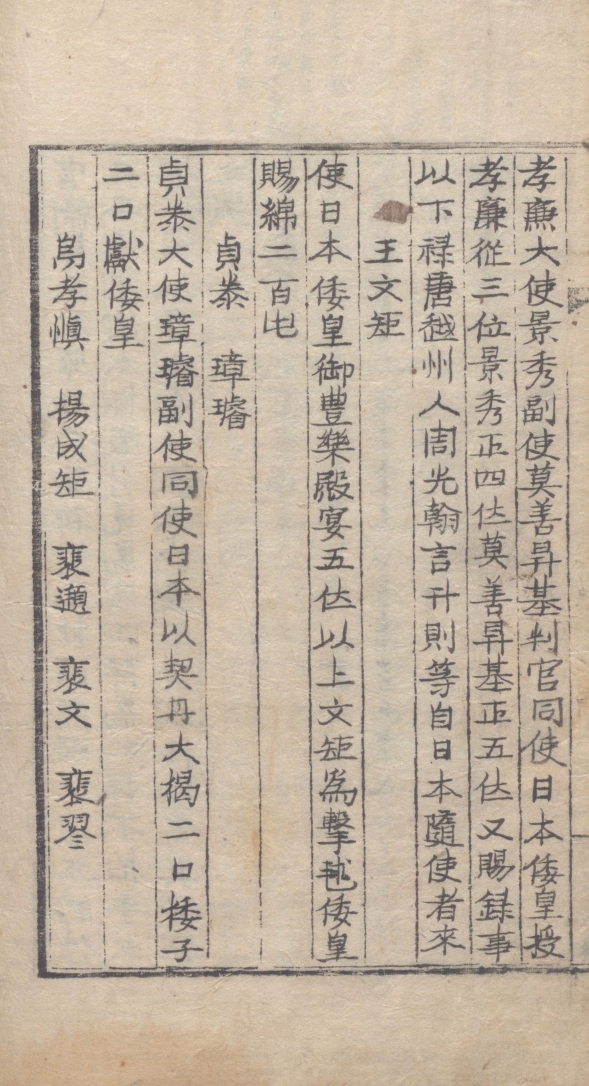 孝廉大使景秀副使莫善昇基判官同使日本倭皇授
孝廉從三位景秀正四位莫善昇基正五位又賜錄事
以下祿唐越州人周光翰言升則等自日本隨使者來
王文矩
使日本倭皇御豊樂殿宴五位以上文矩為擊毬倭皇
賜綿二百屯
貞泰　璋璿
貞泰大使璋璿副使同使日本以契丹大猲二口㹻子
二口獻倭皇
烏孝愼　揚成矩　裴遒　裴文　裴璆